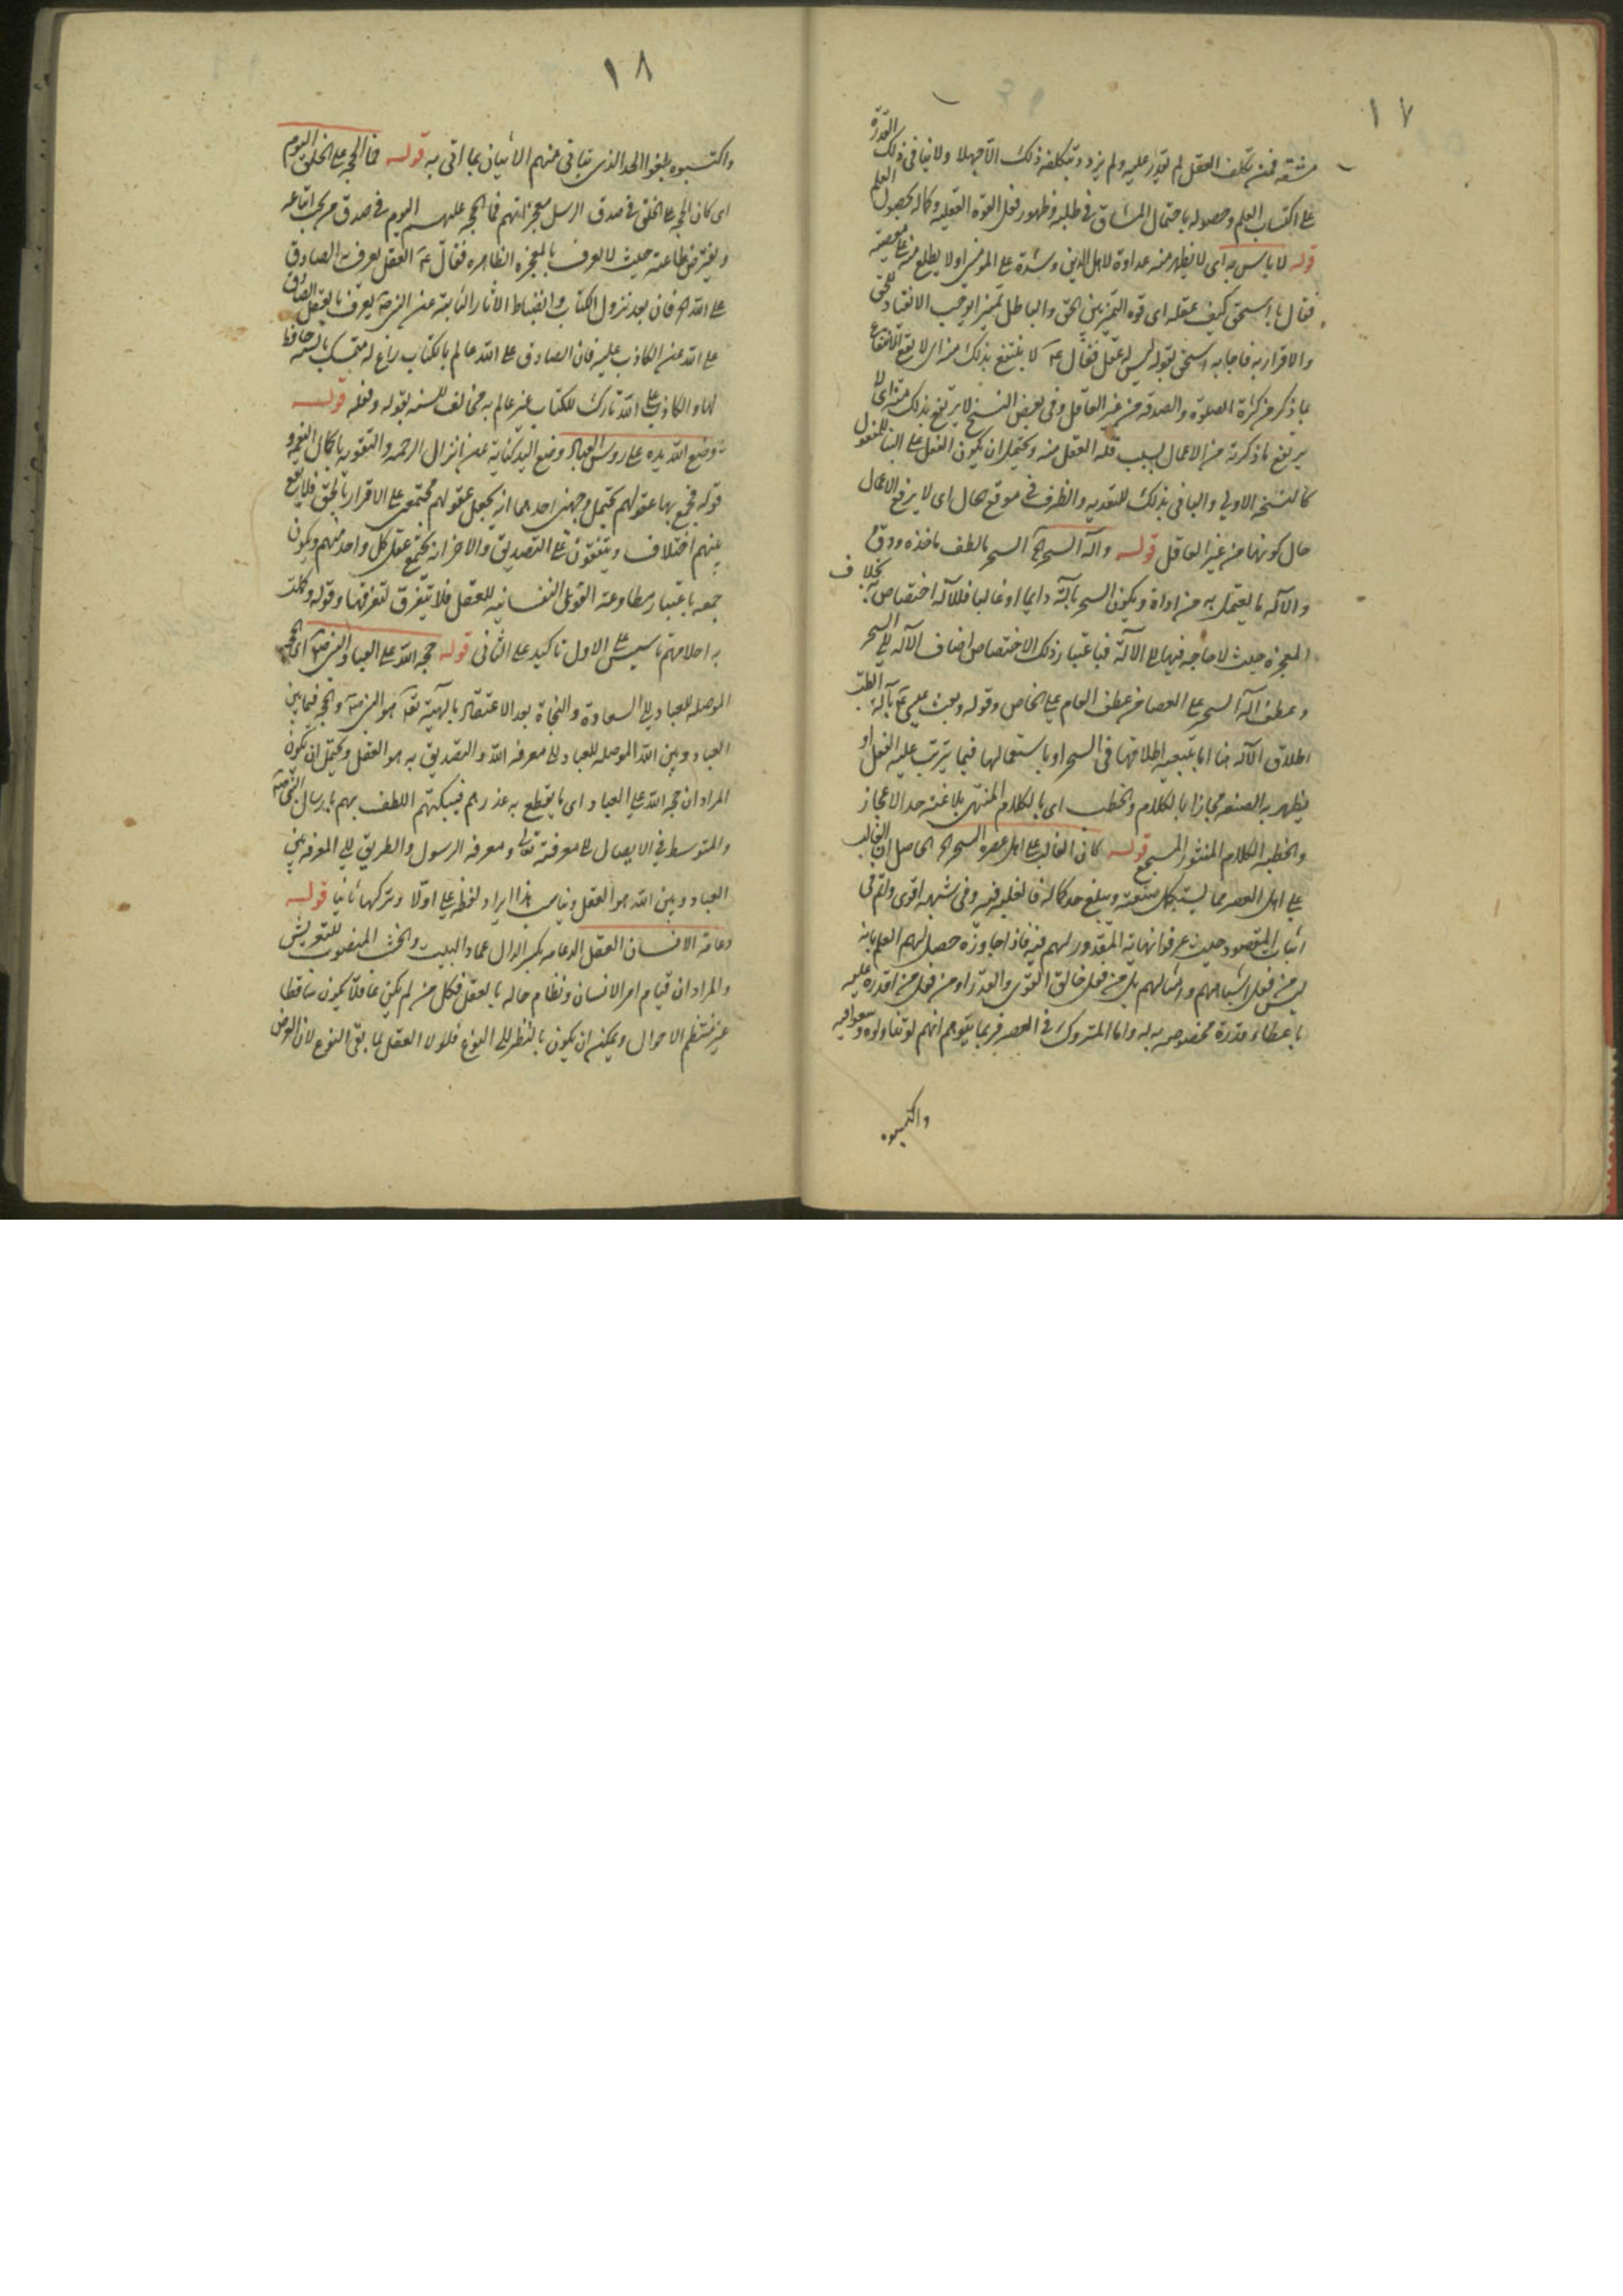 ١٧
مشقة فمن تكلف العقل لم يقدر عليه ولم يزدد بتكلفه ذلك الا جهلا ولا ينافي ذلك القدرة
على اكتساب العلم وحصوله باحتمال المشاق في طلبه وظهور فعل القوة العقلية وكماله بحصول العلم
قوله لا باس به اى لا يظهر منه عداوة لاهل الدين وشدة على المؤمنين اولا يطلع منه على معصية
فقال يا اسحق كيف عقله اى قوة التميز بين الحق والباطل تميزا يوجب الانقياد للحق
والاقرار به فاجابه اسحق بقوله ليس له عقل فقال ع لا ينتفع بذلك منه اى لا يقع الانتفاع
بما ذكر من كثرة الصلوة والصدقة من غير العاقل وفي بعض النسخ لا يرتفع بذلك منه اى لا
يرتفع ما ذكرته من الاعمال بسبب قلة العقل منه ويحتمل ان يكون الفعل على البناء للمفعول
كالنسخة الاولى والباء في بذلك للتعدية والظرف في موقع حال اى لا يرفع الاعمال
حال كونها من غير العاقل قوله وآلة السحر الخ السحر ما لطف ماخذه ودق
والآلة ما يعتمل به من اداة ويكون السحر بآلة دايما او غالبا فللآلة اختصاص به بخلاف
المعجزة حيث لا حاجة فيها الى الآلة فباعتبار ذلك الاختصاص اضاف الآلة الى السحر
وعطف آلة السحر على العصا من عطف العام على الخاص وقوله وبعث عيسى ع بآلة الطب
اطلاق الآلة هنا اما بتبعية اطلاقها في السحر او باستعمالها فيما يترتب عليه الفعل او
يظهر به الصنع مجازا بالكلام والخطب اى بالكلام المنتهى بلاغته حد الاعجاز
والخطبة الكلام المنثور المسجع قوله كان الغالب على اهل عصره السحر الخ الحاصل ان الغالب
على اهل العصر مما يستكمل صنعته ويبلغ حد كماله فالغلبة فيه وفي شبهه اقوى واتم في
اثبات المقصود حيث عرفوا نهاية المقدور لهم فيه فاذا جاوزه حصل لهم العلم بانه
ليس من فعل اشباههم وامثالهم بل من فعل خالق القوى والقدر او من فعل من اقدره عليه
باعطاء قدرة مخصوصة به له واما المتروك في العصر فربما يتوهم انهم لو تناولوه وسعوا فيه
واكتسبوه
١٨
واكتسبوه بلغوا الحد الذي يتاتى منهم الاتيان بما اتى به قوله فما الحجة على الخلق اليوم
اى كان الحجة على الخلق في صدق الرسل معجزاتهم فما الحجة عليهم اليوم في صدق من يجب اتباعه
ويفترض طاعته حيث لا يعرف بالمعجزة الظاهرة فقال ع العقل يعرف به الصادق
على الله الخ فان بعد نزول الكتاب وانضباط الاثار الثابتة عن النبي ص يعرف بالعقل الصادق
على الله عن الكاذب عليه فان الصادق على الله عالم بالكتاب راع له متمسك بالسنة حافظ
لها والكاذب على الله تارك للكتاب غير عالم به مخالف للسنة بقوله وفعله قوله
وضع الله يده على رؤس العباد وضع اليد كناية عن انزال الرحمة والتقوية باكمال النعمة و
قوله فجمع بها عقولهم يحتمل وجهين احدهما انه يجعل عقولهم مجتمعة على الاقرار بالحق فلا يقع
بينهم اختلاف ويتفقون على التصديق والاخر انه يجتمع عقل كل واحد منهم ويكون
جمعه باعتبار مطاوعة القوى النفسانية للعقل فلا يتفرق لتفرقها وقوله وكملت
به احلامهم تاسيس على الاول تاكيد على الثاني قوله حجة الله على العباد النبي ص اى الحجة
الموصلة للعباد الى السعادة والنجاة بعد الاعتقاد بالهيته تعالى هو النبي ص والحجة فيما بين
العباد وبين الله الموصلة للعباد الى معرفة الله والتصديق به هو العقل ويحتمل ان يكون
المراد ان حجة الله على العباد اى ما يقطع به عذرهم فيبكتهم اللطف بهم بارسال النبي ص
والمتوسط في الايصال الى معرفته تعالى ومعرفة الرسول والطريق الى المعرفة بين
العباد وبين الله هو العقل ويناسب هذا ايراد لفظة على اولا وتركها ثانيا قوله
دعامة الانسان العقل الدعامة بكسر الدال عماد البيت والخشب المنصوب للتعريش
والمراد ان قيام امر الانسان ونظام حاله بالعقل فكل من لم يكن عاقلا يكون ساقطا
غير منتظم الاحوال ويمكن ان يكون بالنظر الى النوع فلولا العقل لما بقى النوع لان الغرض